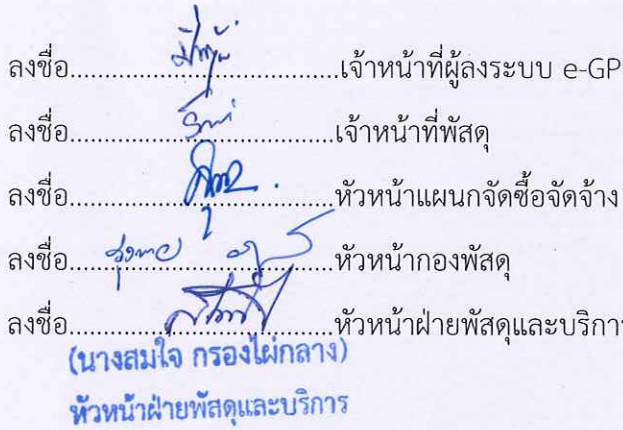 ลงชื่อ....................................เจ้าหน้าที่ผู้ลงระบบ e-GP
ลงชื่อ....................................เจ้าหน้าที่พัสดุ
ลงชื่อ....................................หัวหน้าแผนกจัดซื้อจัดจ้าง
ลงชื่อ....................................หัวหน้ากองพัสดุ
ลงชื่อ....................................หัวหน้าฝ่ายพัสดุและบริการ
(นางสมใจ กรองไผ่กลาง)
หัวหน้าฝ่ายพัสดุและบริการ